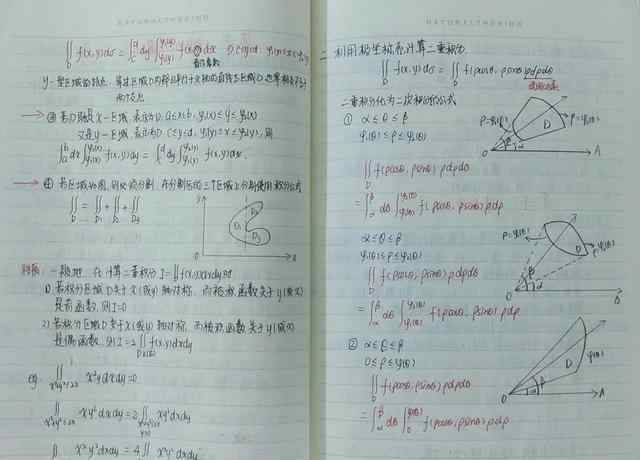 ∬_D f(x,y)dσ = ∫_c^d dy ∫_{φ₁(y)}^{φ₂(y)} f(x,y)dx D: c≤y≤d
y-型区域的特点: 穿过区域D内部且平行于x轴的直线与区域D边界相交不多于
两个交点
→ ③ 若D既是x-区域, 表示为D: a≤x≤b, φ₁(x)≤y≤φ₂(x)
又是y-区域, 表示为D: c≤y≤d, ψ₁(y)≤x≤ψ₂(y), 则
∫_a^b dx ∫_{φ₁(x)}^{φ₂(x)} f(x,y)dy = ∫_c^d dy ∫_{ψ₁(y)}^{ψ₂(y)} f(x,y)dx.
→ ④ 若区域如图, 则必须分割. 在分割后的三个区域上分别使用积分公式
∬_D = ∬_{D₁} + ∬_{D₂} + ∬_{D₃}
y
D₂
D₁
D₃
0
x
一般地, 在计算二重积分 I=∬f(x,y)dxdy时
1) 若积分区域D关于x(或y)轴对称, 而被积函数关于y(或x)
是奇函数, 则I=0
2) 若积分区域D关于x(或y)轴对称, 而被积函数关于y(或x)
是偶函数, 则I=2∬f(x,y)dxdy
eg. ∬ x²y dxdy=0
∬ xy²dxdy=2∬ xy²dxdy
∬ x²y²dxdy = 4∬ x²y²dxdy
二. 利用极坐标系计算二重积分
∬_D f(x,y)dσ = ∬_D f(ρcosθ, ρsinθ)ρdρdθ
二重积分化为二次积分的公式
① α≤θ≤β
φ₁(θ)≤ρ≤φ₂(θ)
∬_D f(ρcosθ, ρsinθ)ρdρdθ
= ∫_α^β dθ ∫_{φ₁(θ)}^{φ₂(θ)} f(ρcosθ, ρsinθ)ρdρ
ρ=φ₁(θ)
D
ρ=φ₂(θ)
β
α
O
A
α≤θ≤β
φ₁(θ)≤ρ≤φ₂(θ)
∬_D f(ρcosθ, ρsinθ)ρdρdθ
= ∫_α^β dθ ∫_{φ₁(θ)}^{φ₂(θ)} f(ρcosθ, ρsinθ)ρdρ
D
β
α
O
② α≤θ≤β
0≤ρ≤φ(θ)
∬_D f(ρcosθ, ρsinθ)ρdρdθ
= ∫_α^β dθ ∫_0^{φ(θ)} f(ρcosθ, ρsinθ)ρdρ
D
φ(θ)
β
α
O
A